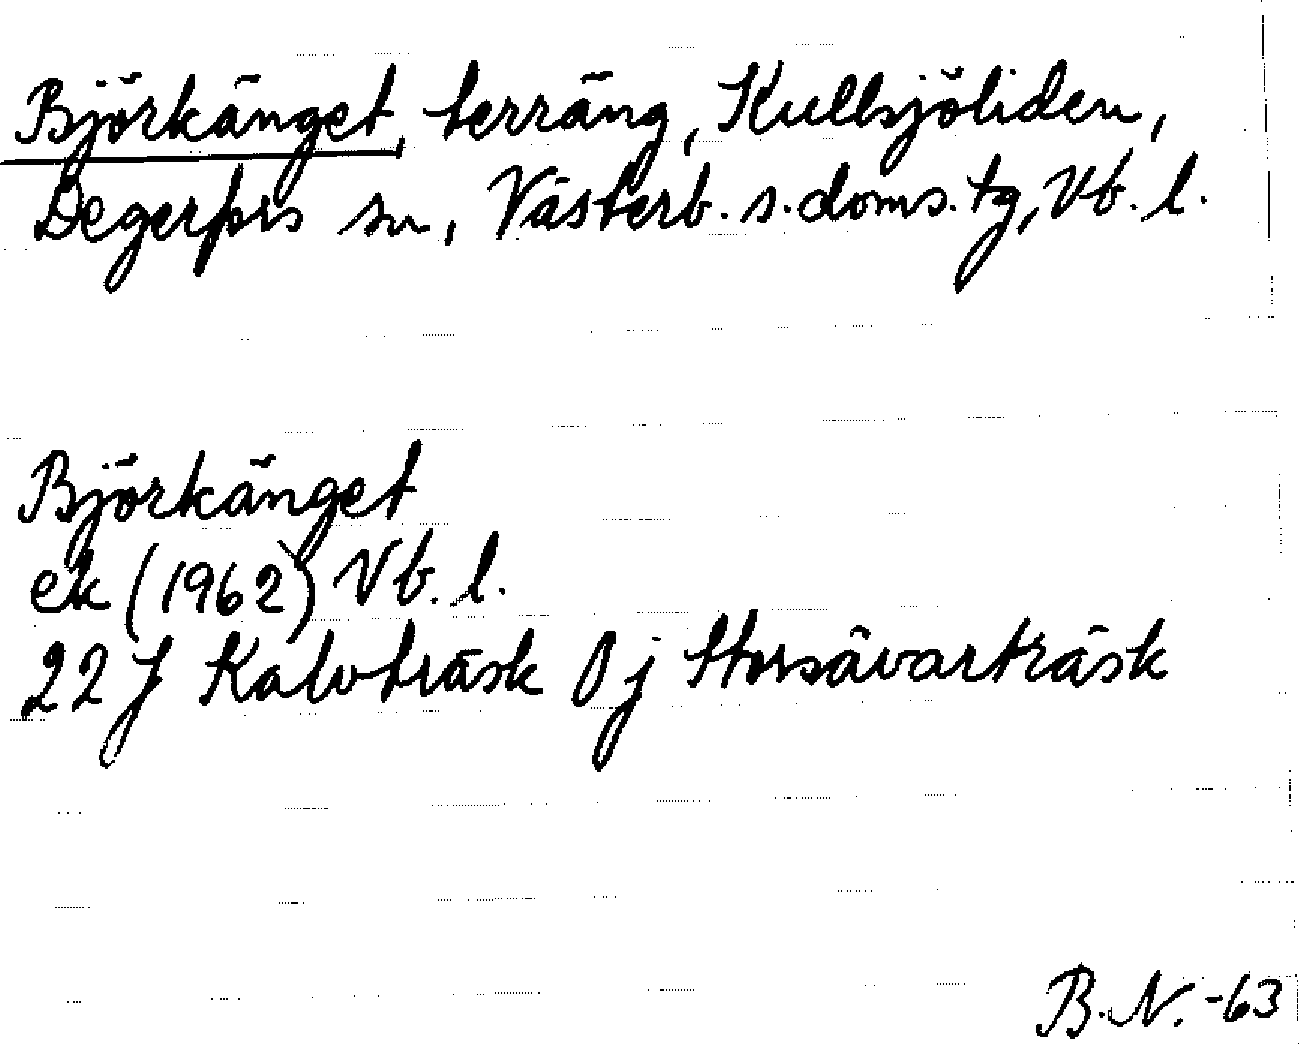 Björkänget, terräng, Kullsjöliden,
Degerfors sn, Västerb. s. doms. tg, Vb. l.
Björkänget
ek (1962) Vb. l.
22 J Kalvträsk 0 j Storsävarträsk
B. N. -63